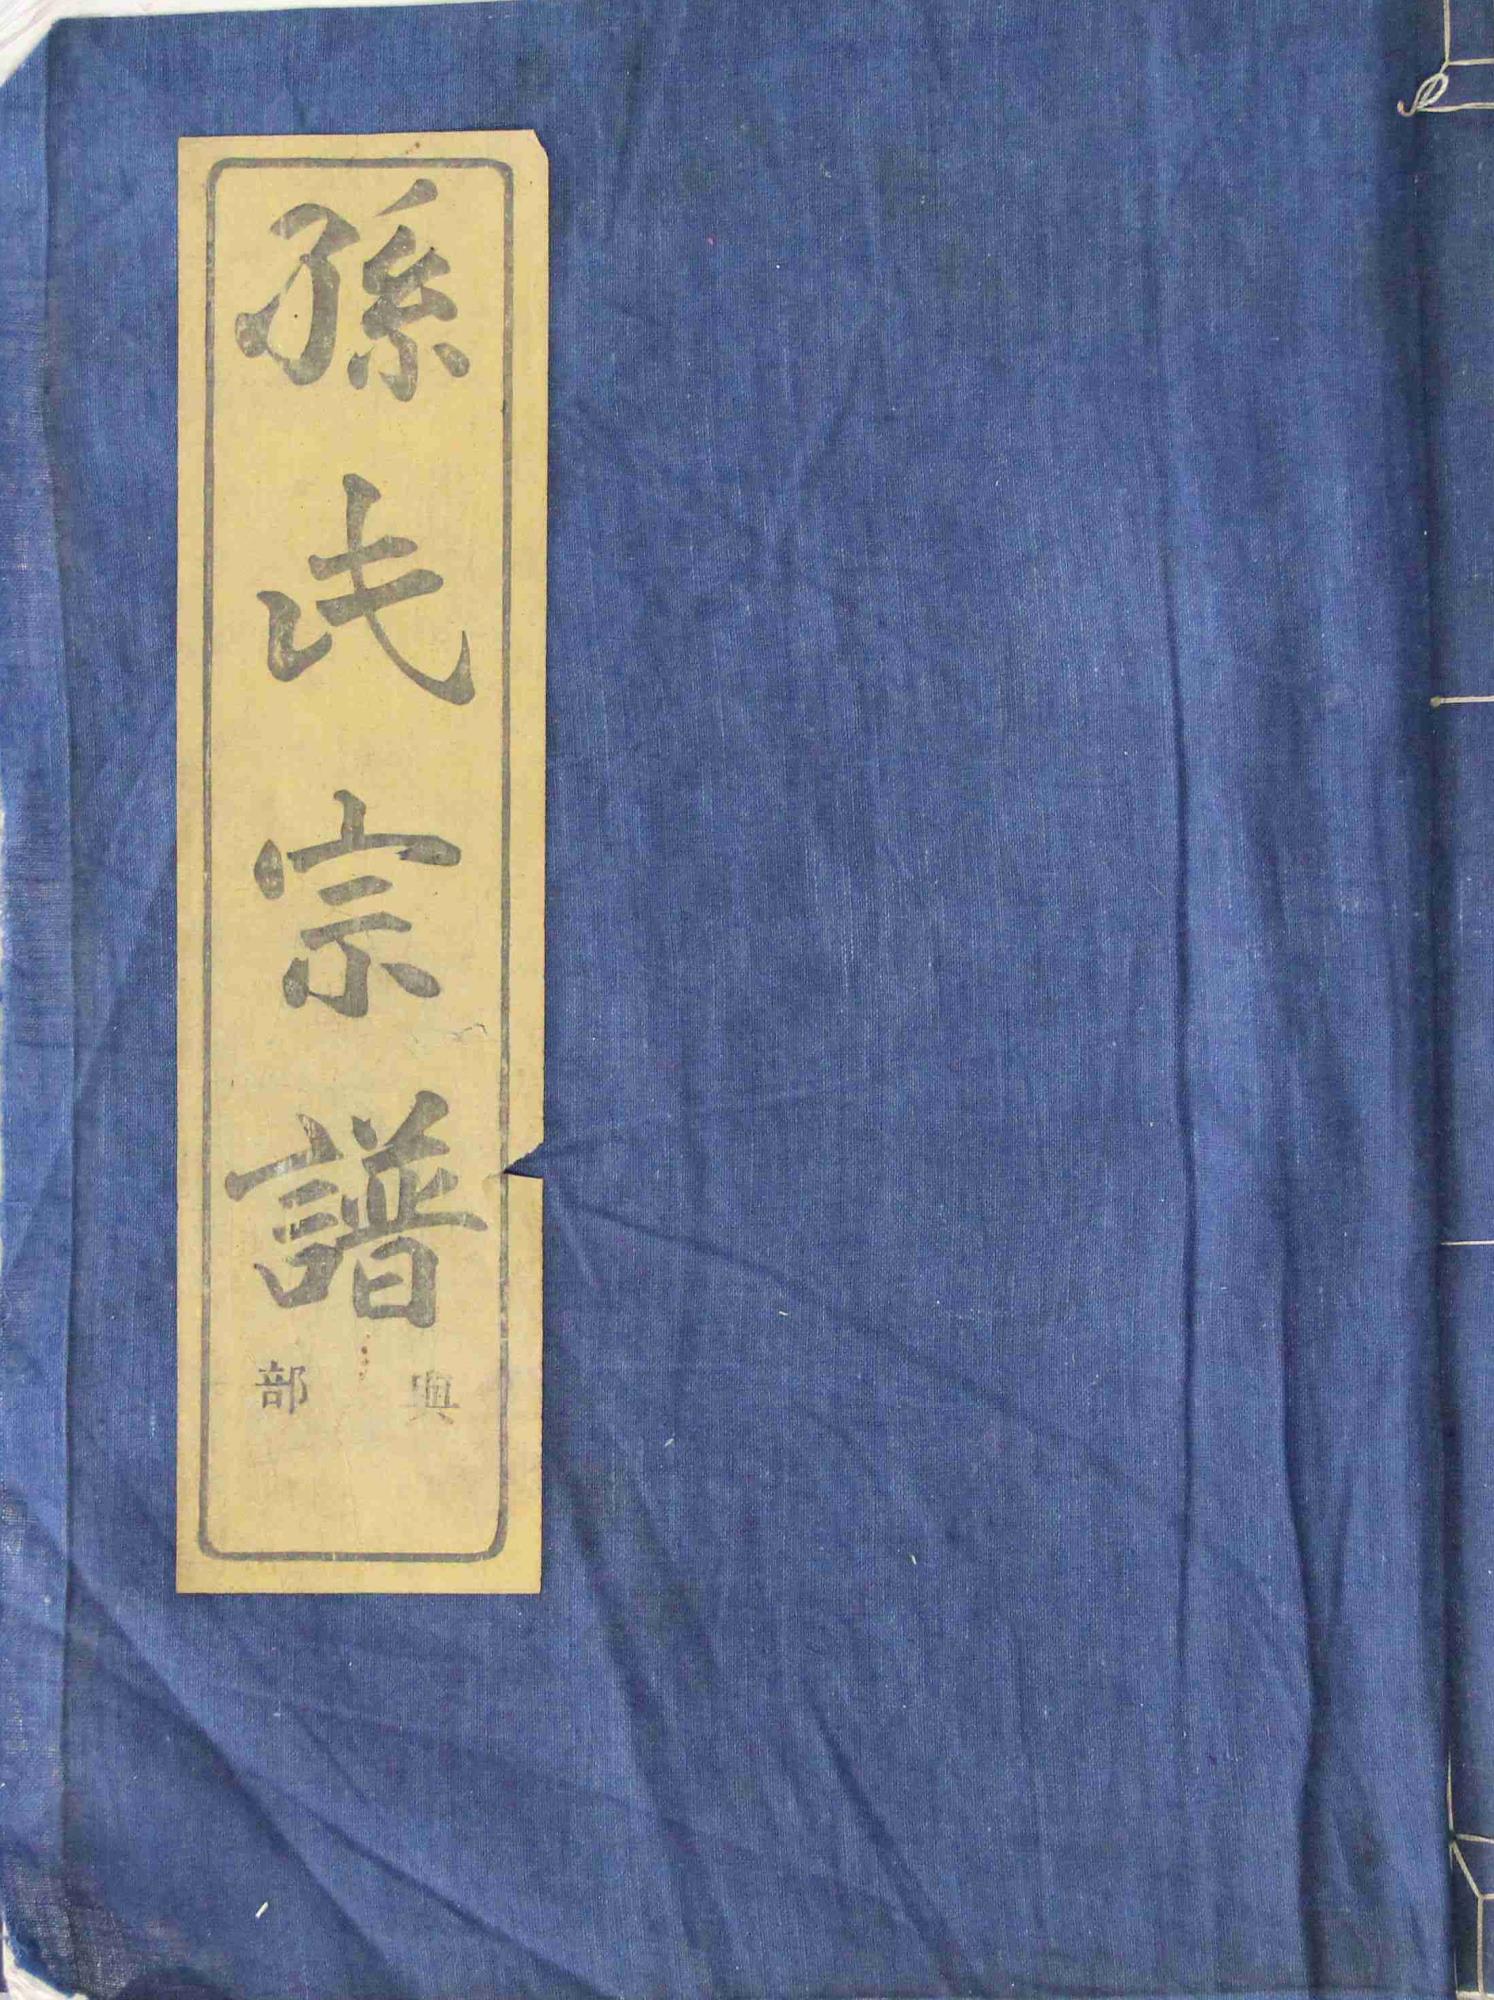 孫氏宗譜
典部